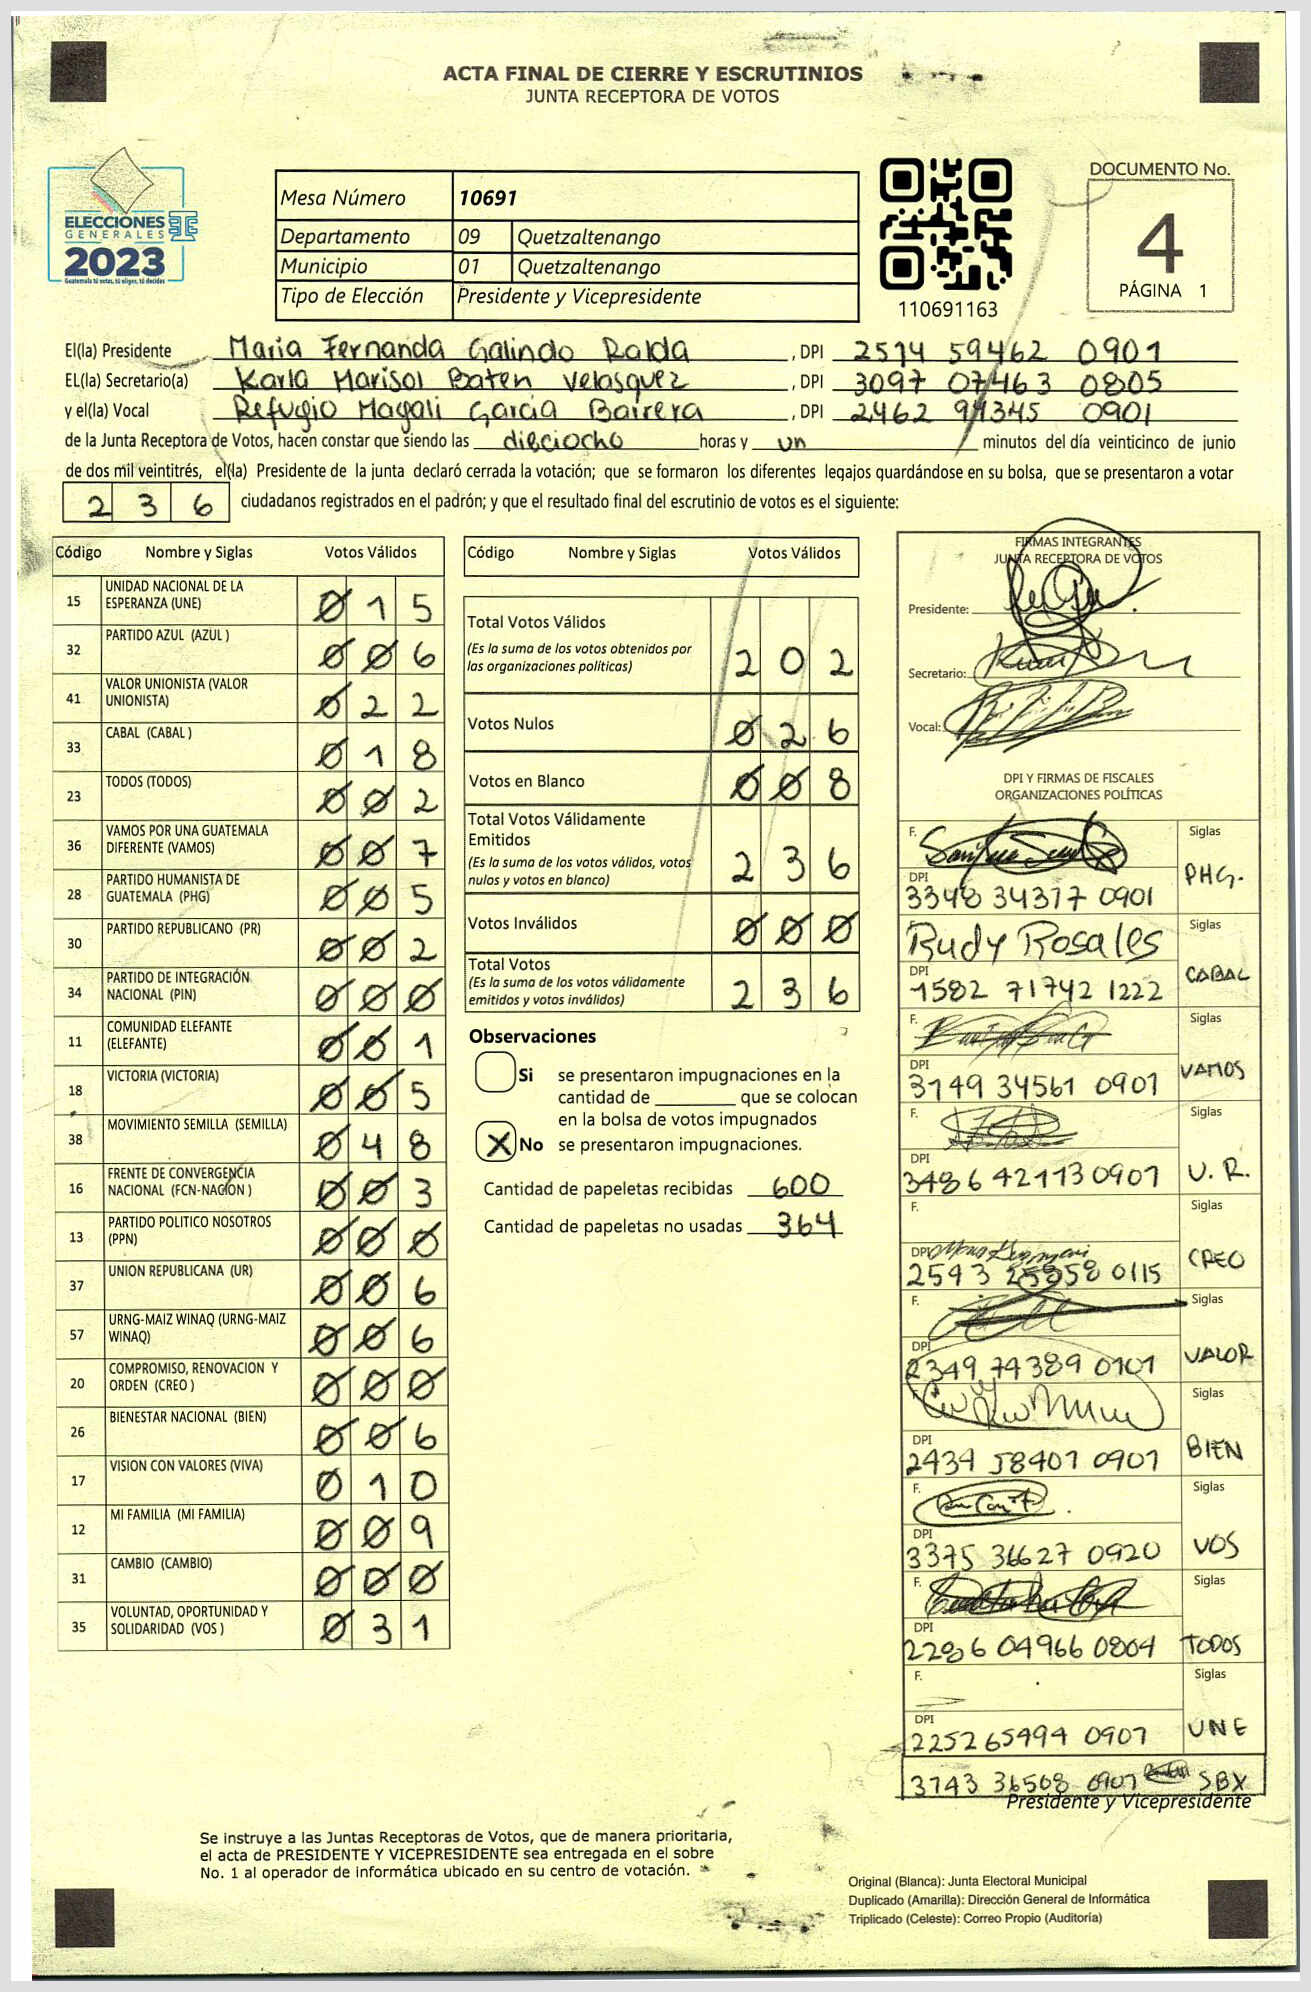 ACTA FINAL DE CIERRE Y ESCRUTINIOS
JUNTA RECEPTORA DE VOTOS
ELECCIONES
GENERALES
2023
Guatemala tú votas, tú eliges, tú decides
TSE
Mesa Número 10691
Departamento 09 Quetzaltenango
Municipio 01 Quetzaltenango
Tipo de Elección Presidente y Vicepresidente
110691163
DOCUMENTO No.
4
PÁGINA 1
El(la) Presidente Maria Fernanda Galindo Ralda, DPI 2514 59462 0901
EL(la) Secretario(a) Karla Marisol Baten Velasquez, DPI 3097 07463 0805
y el(la) Vocal Refugio Magali Garcia Barrera, DPI 2462 94345 0901
de la Junta Receptora de Votos, hacen constar que siendo las dieciocho horas y un minutos del día veinticinco de junio
de dos mil veintitrés, el(la) Presidente de la junta declaró cerrada la votación; que se formaron los diferentes legajos guardándose en su bolsa, que se presentaron a votar
236 ciudadanos registrados en el padrón; y que el resultado final del escrutinio de votos es el siguiente:
Código Nombre y Siglas Votos Válidos
15 UNIDAD NACIONAL DE LA ESPERANZA (UNE) 015
32 PARTIDO AZUL (AZUL ) 006
41 VALOR UNIONISTA (VALOR UNIONISTA) 022
33 CABAL (CABAL ) 018
23 TODOS (TODOS) 002
36 VAMOS POR UNA GUATEMALA DIFERENTE (VAMOS) 007
28 PARTIDO HUMANISTA DE GUATEMALA (PHG) 005
30 PARTIDO REPUBLICANO (PR) 002
34 PARTIDO DE INTEGRACIÓN NACIONAL (PIN) 000
11 COMUNIDAD ELEFANTE (ELEFANTE) 001
18 VICTORIA (VICTORIA) 005
38 MOVIMIENTO SEMILLA (SEMILLA) 048
16 FRENTE DE CONVERGENCIA NACIONAL (FCN-NACION ) 003
13 PARTIDO POLITICO NOSOTROS (PPN) 000
37 UNION REPUBLICANA (UR) 006
57 URNG-MAIZ WINAQ (URNG-MAIZ WINAQ) 006
20 COMPROMISO, RENOVACION Y ORDEN (CREO ) 000
26 BIENESTAR NACIONAL (BIEN) 006
17 VISION CON VALORES (VIVA) 010
12 MI FAMILIA (MI FAMILIA) 009
31 CAMBIO (CAMBIO) 000
35 VOLUNTAD, OPORTUNIDAD Y SOLIDARIDAD (VOS ) 031
Código Nombre y Siglas Votos Válidos
Total Votos Válidos 202
(Es la suma de los votos obtenidos por
las organizaciones políticas)
Votos Nulos 026
Votos en Blanco 008
Total Votos Válidamente
Emitidos 236
(Es la suma de los votos válidos, votos
nulos y votos en blanco)
Votos Inválidos 000
Total Votos 236
(Es la suma de los votos válidamente
emitidos y votos inválidos)
Observaciones
Si se presentaron impugnaciones en la
cantidad de ________ que se colocan
en la bolsa de votos impugnados
X No se presentaron impugnaciones.
Cantidad de papeletas recibidas 600
Cantidad de papeletas no usadas 364
FIRMAS INTEGRANTES
JUNTA RECEPTORA DE VOTOS
Presidente:
Secretario:
Vocal:
DPI Y FIRMAS DE FISCALES
ORGANIZACIONES POLÍTICAS
F. Siglas
PHG.
DPI
3348 34377 0901
Rudy Rosales Siglas
CABAL
DPI
1582 71742 1222
F. Siglas
VAMOS
DPI
3149 34561 0901
F. Siglas
U. R.
DPI
3486 42113 0901
F. Siglas
CREO
DPI
2543 25858 0115
F. Siglas
VALOR
DPI
2349 74389 0101
Siglas
BIEN
DPI
2434 58401 0901
F. Siglas
VOS
DPI
3375 36627 0920
F. Siglas
TODOS
DPI
2286 04966 0804
F. Siglas
UNE
DPI
2252 65494 0901
3743 36508 0901 SBX
Presidente y Vicepresidente
Se instruye a las Juntas Receptoras de Votos, que de manera prioritaria,
el acta de PRESIDENTE Y VICEPRESIDENTE sea entregada en el sobre
No. 1 al operador de informática ubicado en su centro de votación.
Original (Blanca): Junta Electoral Municipal
Duplicado (Amarilla): Dirección General de Informática
Triplicado (Celeste): Correo Propio (Auditoría)